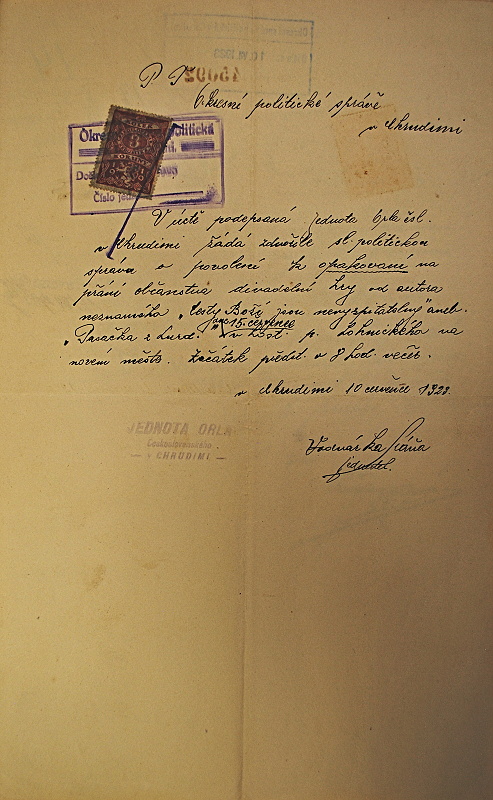 P. T.
Okresné politické správě
v Chrudimi
Okre politická
KORUN
Číslo jed
V úctě podepsaná jednota Orla čsl.
v Chrudimi žádá zdvořile sl. politickou
správu o povolení k opakování na
přání občanstva divadelní hry od autora
neznámého „Cesty Boží jsou nevyzpitatelny" aneb.
dne 15. července
„Pasačka z Lurd." v host. p. Lohnického na
novém městě. Začátek předst. v 8 hod. večer.
v Chrudimi 10 července 1923.
JEDNOTA ORLA
Československého
— v CHRUDIMI —
Vodvárka
jednatel.